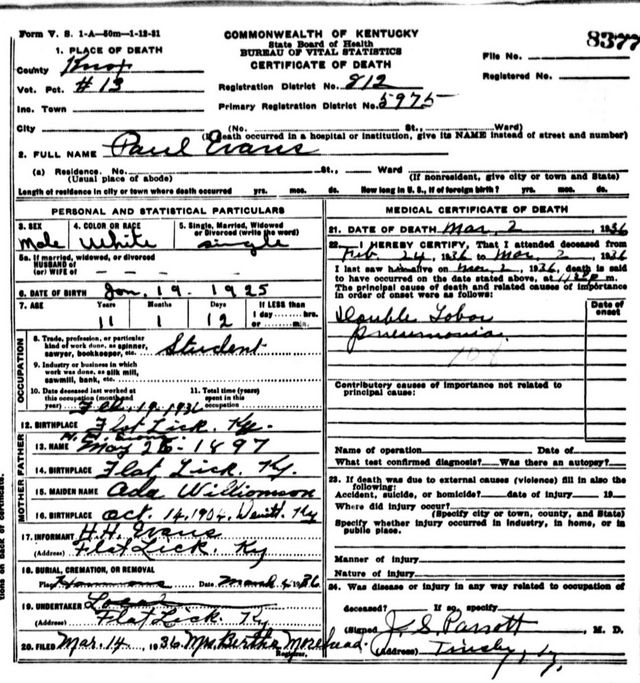 Form V. S. 1-A—50m—1-12-31
COMMONWEALTH OF KENTUCKY
State Board of Health
BUREAU OF VITAL STATISTICS
CERTIFICATE OF DEATH
8377
File No.
Registered No.
1. PLACE OF DEATH
County Knox
Vot. Pct. #13
Inc. Town
Registration District No. 812
Primary Registration District No. 5975
City (No. St., Ward)
(If death occurred in a hospital or institution, give its NAME instead of street and number)
2. FULL NAME Paul Evans
(a) Residence. No. St., Ward
(Usual place of abode) (If nonresident, give city or town and State)
Length of residence in city or town where death occurred yrs. mos. ds. How long in U. S., if of foreign birth? yrs. mos. ds.
PERSONAL AND STATISTICAL PARTICULARS
3. SEX Male
4. COLOR OR RACE White
5. Single, Married, Widowed or Divorced (write the word) Single
5a. If married, widowed, or divorced
HUSBAND of
(or) WIFE of
6. DATE OF BIRTH Jan. 19 - 1925
7. AGE Years Months Days If LESS than
1 day hrs.
or min.
11 1 12
OCCUPATION
8. Trade, profession, or particular kind of work done, as spinner, sawyer, bookkeeper, etc. Student
9. Industry or business in which work was done, as silk mill, sawmill, bank, etc.
10. Date deceased last worked at this occupation (month and year) Feb 19, 1936
11. Total time (years) spent in this occupation
12. BIRTHPLACE Flat Lick, Ky.
FATHER
13. NAME May 26 - 1897
14. BIRTHPLACE Flat Lick, Ky.
MOTHER
15. MAIDEN NAME Ada Williamson
16. BIRTHPLACE Oct. 14, 1904, Ky
17. INFORMANT H. H. Evans
(Address) Flat Lick, Ky
18. BURIAL, CREMATION, OR REMOVAL
Place Date March 4, 1936
19. UNDERTAKER Local
(Address) Flat Lick, Ky
20. FILED Mar. 14, 1936 Mrs. Bertha Morehead
Registrar.
MEDICAL CERTIFICATE OF DEATH
21. DATE OF DEATH Mar. 2, 1936
22. I HEREBY CERTIFY, That I attended deceased from
Feb. 24, 1936 to Mar. 2, 1936
I last saw him alive on Mar. 2, 1936, death is said
to have occurred on the date stated above, at m.
The principal cause of death and related causes of importance
in order of onset were as follows:
Date of onset
Double Lobar
Pneumonia
Contributory causes of importance not related to
principal cause:
Name of operation Date of
What test confirmed diagnosis? Was there an autopsy?
23. If death was due to external causes (violence) fill in also the
following:
Accident, suicide, or homicide? date of injury 19
Where did injury occur?
(Specify city or town, county, and State)
Specify whether injury occurred in industry, in home, or in
public place.
Manner of injury
Nature of injury
24. Was disease or injury in any way related to occupation of
deceased? If so, specify
(Signed) J. S. Parrott, M. D.
(Address) Tinsley, Ky.
tions on back of certificate.